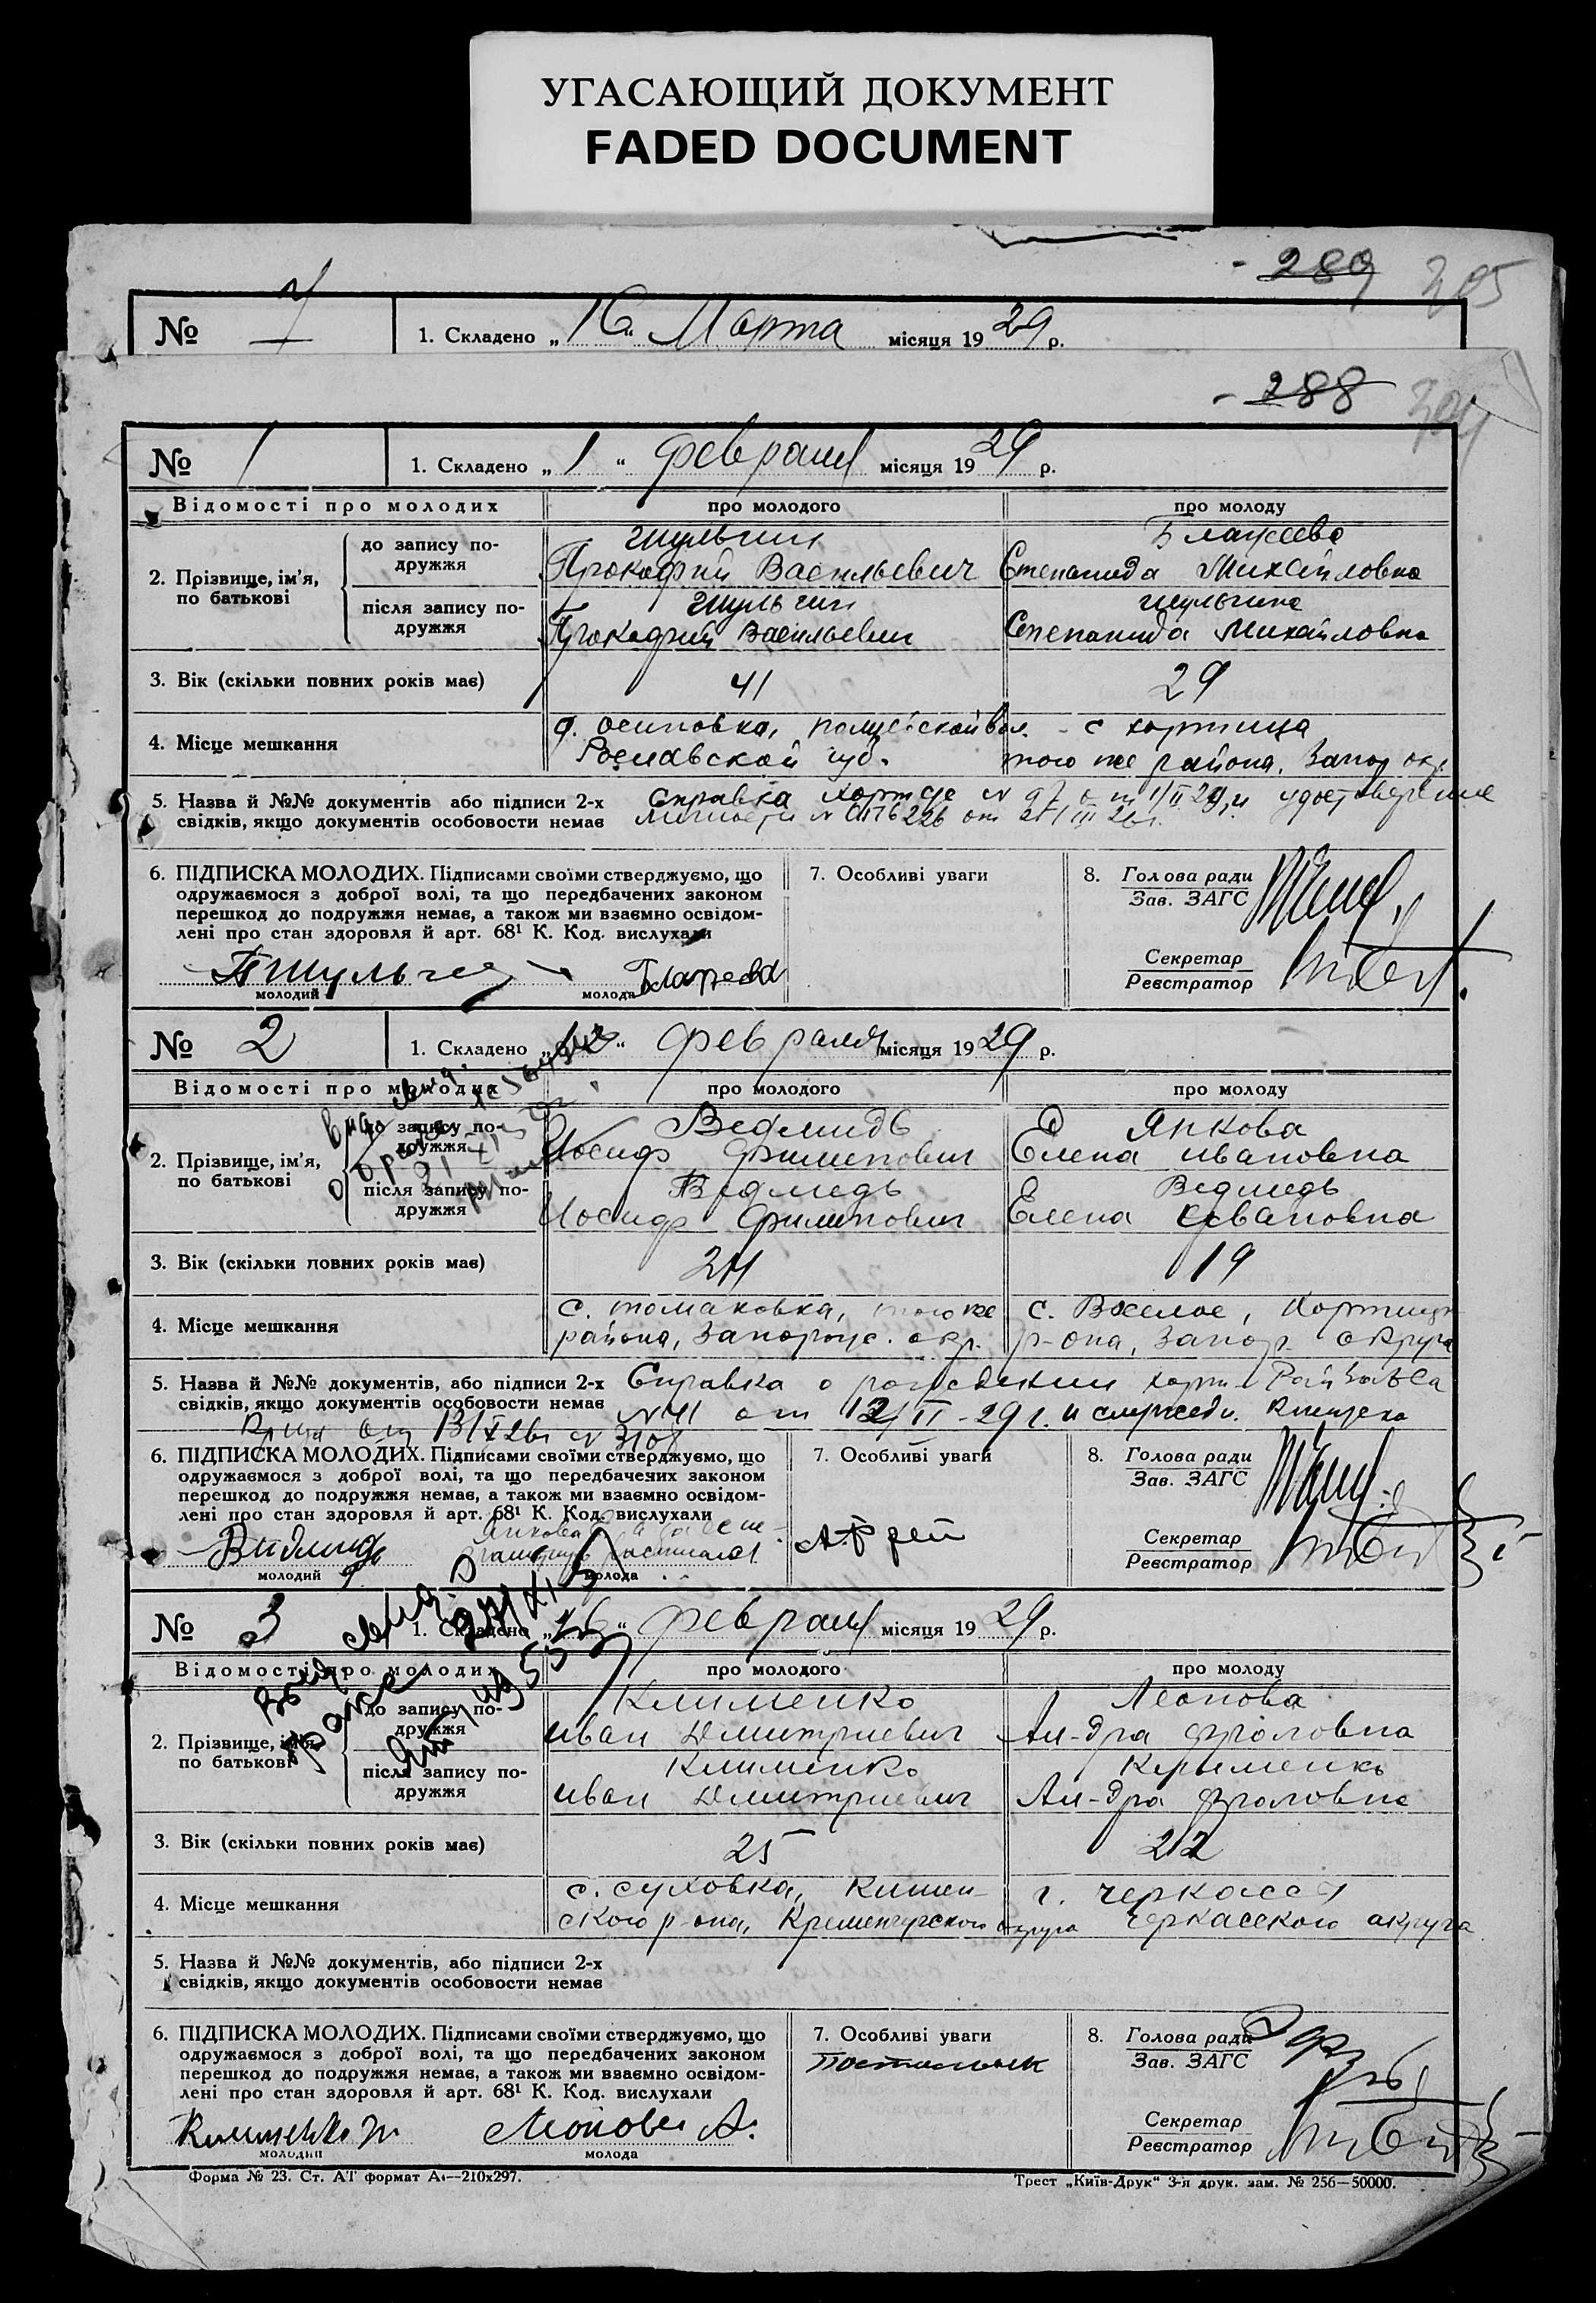 УГАСАЮЩИЙ ДОКУМЕНТ
FADED DOCUMENT
289 305
№ 4 1. Складено „16“ Марта місяця 1929 р.
288 304
№ 1 1. Складено „1“ февраля місяця 1929 р.
Відомості про молодих про молодого про молоду
2. Прізвище, ім'я, по батькові
до запису подружжя
Шульгин
Прокофий Васильевич
Степанида Михайловна
після запису подружжя
Шульгин
Прокофий Васильевич
Шульгина
Степанида Михайловна
3. Вік (скільки повних років має) 41 29
4. Місце мешкання
д. Осиповка,
губ.
с Хортица
того же района, Запор окр.
5. Назва й №№ документів або підписи 2-х
свідків, якщо документів особовости немає
Справка от 1/II 29 г. и удостоверение
личности №
6. ПІДПИСКА МОЛОДИХ. Підписами своїми стверджуємо, що
одружаємося з доброї волі, та що передбачених законом
перешкод до подружжя немає, а також ми взаємно освідом-
лені про стан здоровля й арт. 68¹ К. Код. вислухали
молодий молода
7. Особливі уваги
8. Голова ради
Зав. ЗАГС
Секретар
Реєстратор
№ 2 1. Складено „12“ февраля місяця 1929 р.
Відомості про молодих про молодого про молоду
2. Прізвище, ім'я, по батькові
до запису подружжя
Ведмидь
Иосиф Филипович
Янкова
Елена Ивановна
після запису подружжя
Ведмедь
Иосиф Филипович
Ведмедь
Елена Ивановна
3. Вік (скільки повних років має) 24 19
4. Місце мешкання
с. Томаковка, того же
района, Запорож. окр.
с. Веселое, Хортицк
р-она, Запор. округа
5. Назва й №№ документів, або підписи 2-х
свідків, якщо документів особовости немає
Справка о рождении Хорт
от 12/II-29 г. и
6. ПІДПИСКА МОЛОДИХ. Підписами своїми стверджуємо, що
одружаємося з доброї волі, та що передбачених законом
перешкод до подружжя немає, а також ми взаємно освідом-
лені про стан здоровля й арт. 68¹ К. Код. вислухали
молодий молода
7. Особливі уваги
8. Голова ради
Зав. ЗАГС
Секретар
Реєстратор
№ 3 1. Складено „16“ февраля місяця 1929 р.
Відомості про молодих про молодого про молоду
2. Прізвище, ім'я, по батькові
до запису подружжя
Клименко
Иван Дмитриевич
Леонова
Ал-дра Фроловна
після запису подружжя
Клименко
Иван Дмитриевич
Клименко
Ал-дра Фроловна
3. Вік (скільки повних років має) 25 22
4. Місце мешкання
с. Суховка,
ского р-она, Кременчугского округа
г. Черкассы
Черкасского округа
5. Назва й №№ документів, або підписи 2-х
свідків, якщо документів особовости немає
6. ПІДПИСКА МОЛОДИХ. Підписами своїми стверджуємо, що
одружаємося з доброї волі, та що передбачених законом
перешкод до подружжя немає, а також ми взаємно освідом-
лені про стан здоровля й арт. 68¹ К. Код. вислухали
молодий молода
7. Особливі уваги
8. Голова ради
Зав. ЗАГС
Секретар
Реєстратор
Форма № 23. Ст. АТ формат А₄—210х297.
Трест „Київ-Друк“ 3-я друк. зам. № 256—50000.